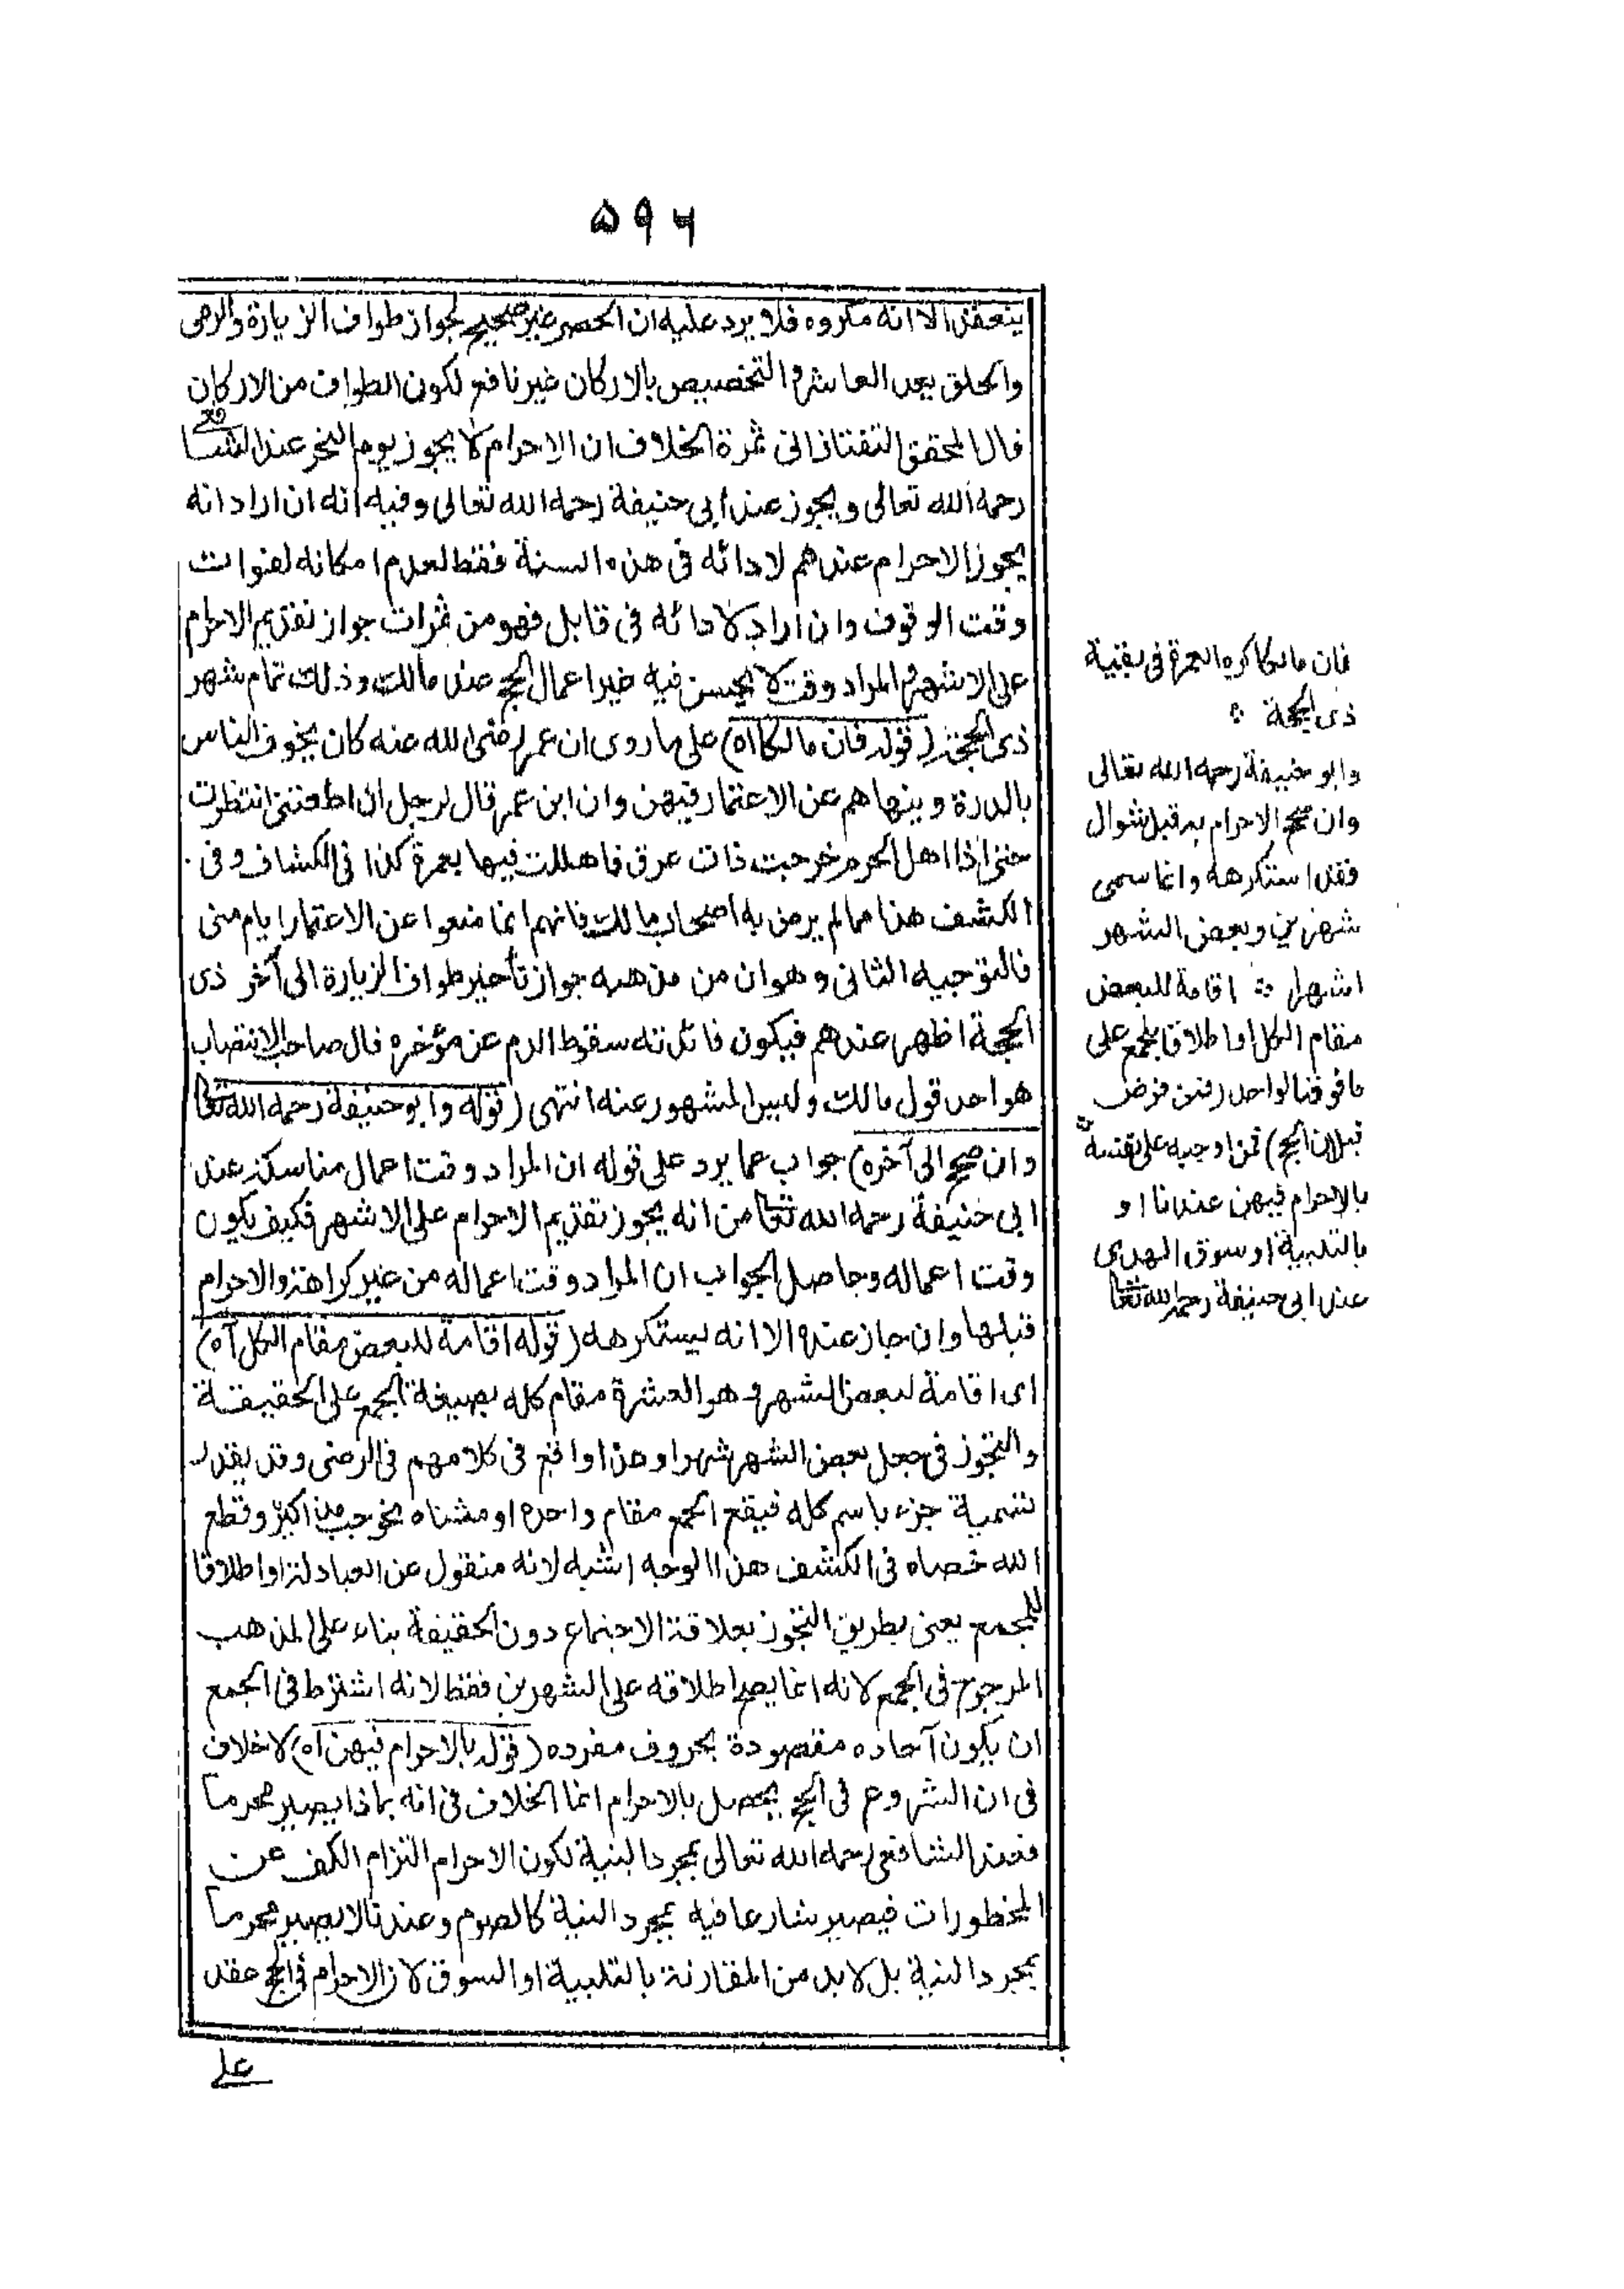 ۵۹۶
ينعقد الا انه مكروه فلا يرد عليه ان الحصر غير صحيح لجواز طواف الزيارة والرمى
والحلق بعد العاشر والتخصيص بالاركان غير نافع لكون الطواف من الاركان
قال المحقق التفتازانى ثمرة الخلاف ان الاحرام لا يجوز يوم النحر عند الشافعى
رحمه الله تعالى ويجوز عند ابى حنيفة رحمه الله تعالى وفيه انه ان اراد انه
يجوز الاحرام عندهم لادائه فى هذه السنة فقط لعدم امكانه لفوات
وقت الوقوف وان اراد لادائه فى قابل فهو من ثمرات جواز تقديم الاحرام
على الاشهر والمراد وقت لا يحسن فيه غير اعمال الحج عند مالك وذلك تمام شهر
ذى الحجة (قوله فان مالكا اه) على ما روى ان عمر رضى الله عنه كان يخوف الناس
بالدرة وينهاهم عن الاعتمار فيهن وان ابن عمر قال لرجل ان اطعتنى انتظرت
حتى اذا اهل المحرم خرجت ذات عرق فاهللت فيها بعمرة كذا فى الكشاف وفى
الكشف هذا مما لم يرض به اصحاب مالك فانهم انما منعوا عن الاعتمار ايام منى
فالتوجيه الثانى وهو ان من مذهبه جواز تأخير طواف الزيارة الى آخر ذى
الحجة اظهر عندهم فيكون فائدته سقوط الدم عن مؤخره قال صاحب الانتصاب
هو احد قول مالك وليس المشهور عنه انتهى (قوله وابو حنيفة رحمه الله تعا
وان صح الى آخره) جواب عما يرد على قوله ان المراد وقت اعمال مناسكه عند
ابى حنيفة رحمه الله تعا من انه يجوز تقديم الاحرام على الاشهر فكيف يكون
وقت اعماله وحاصل الجواب ان المراد وقت اعماله من غير كراهة والاحرام
قبلها وان جاز عنده الا انه يستكرهه (قوله اقامة للبعض مقام الكل آه)
اى اقامة لبعض الشهر وهو العشرة مقام كله بصيغة الجمع على الحقيقة
والتجوز فى جعل بعض الشهر شهرا وهذا واقع فى كلامهم فى الرضى وقد يقدر
تسمية جزء باسم كله فيقع الجمع مقام واحده او مثناه نحو جب مذاكيره وقطع
الله خصاه فى الكشف هذا الوجه اشبه لانه منقول عن العبادلة او اطلاقا
للجمع يعنى بطريق التجوز بعلاقة الاجتماع دون الحقيقة بناء على المذهب
المرجوح فى الجمع لانه انما يصح اطلاقه على الشهرين فقط لانه اشترط فى الجمع
ان يكون آحاده مقصودة بحروف مفرده (قوله بالاحرام فيهن اه) لا خلاف
فى ان الشروع فى الحج يحصل بالاحرام انما الخلاف فى انه بماذا يصير محرما
فعند الشافعى رحمه الله تعالى بمجرد النية لكون الاحرام التزام الكف عن
المحظورات فيصير شارعا فيه بمجرد النية كالصوم وعندنا لا يصير محرما
بمجرد النية بل لا بد من المقارنة بالتلبية او السوق لان الاحرام فى الحج عقد
على
فان مالكا كره العمرة فى بقية
ذى الحجة
وابو حنيفة رحمه الله تعالى
وان صح الاحرام به قبل شوال
فقد استكرهه وانما سمى
شهرين وبعض الشهر
اشهرا اقامة للبعض
مقام الكل او اطلاقا للجمع على
ما فوق الواحد (فمن فرض
فيهن الحج) فمن اوجبه على نفسه
بالاحرام فيهن عندنا او
بالتلبية او سوق الهدى
عند ابى حنيفة رحمه الله تعا